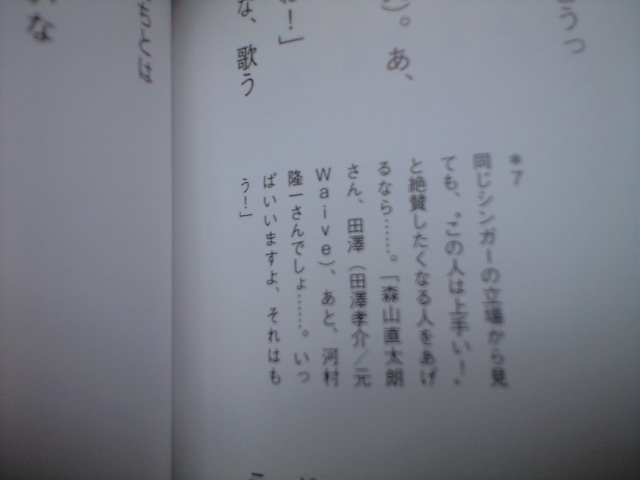 うっ
)。あ、
ね！」
な、歌う
*7
同じシンガーの立場から見
ても、“この人は上手い！”
と絶賛したくなる人をあげ
るなら……。「森山直太朗
さん、田澤（田澤孝介／元
Waive）、あと、河村
隆一さんでしょ……。いっ
ぱいいますよ、それはも
う！」
ちとは
いな